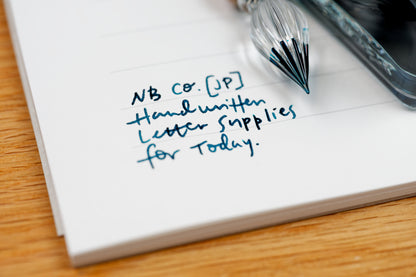 NB Co. [JP]
Handwritten
Letter Supplies
for Today.